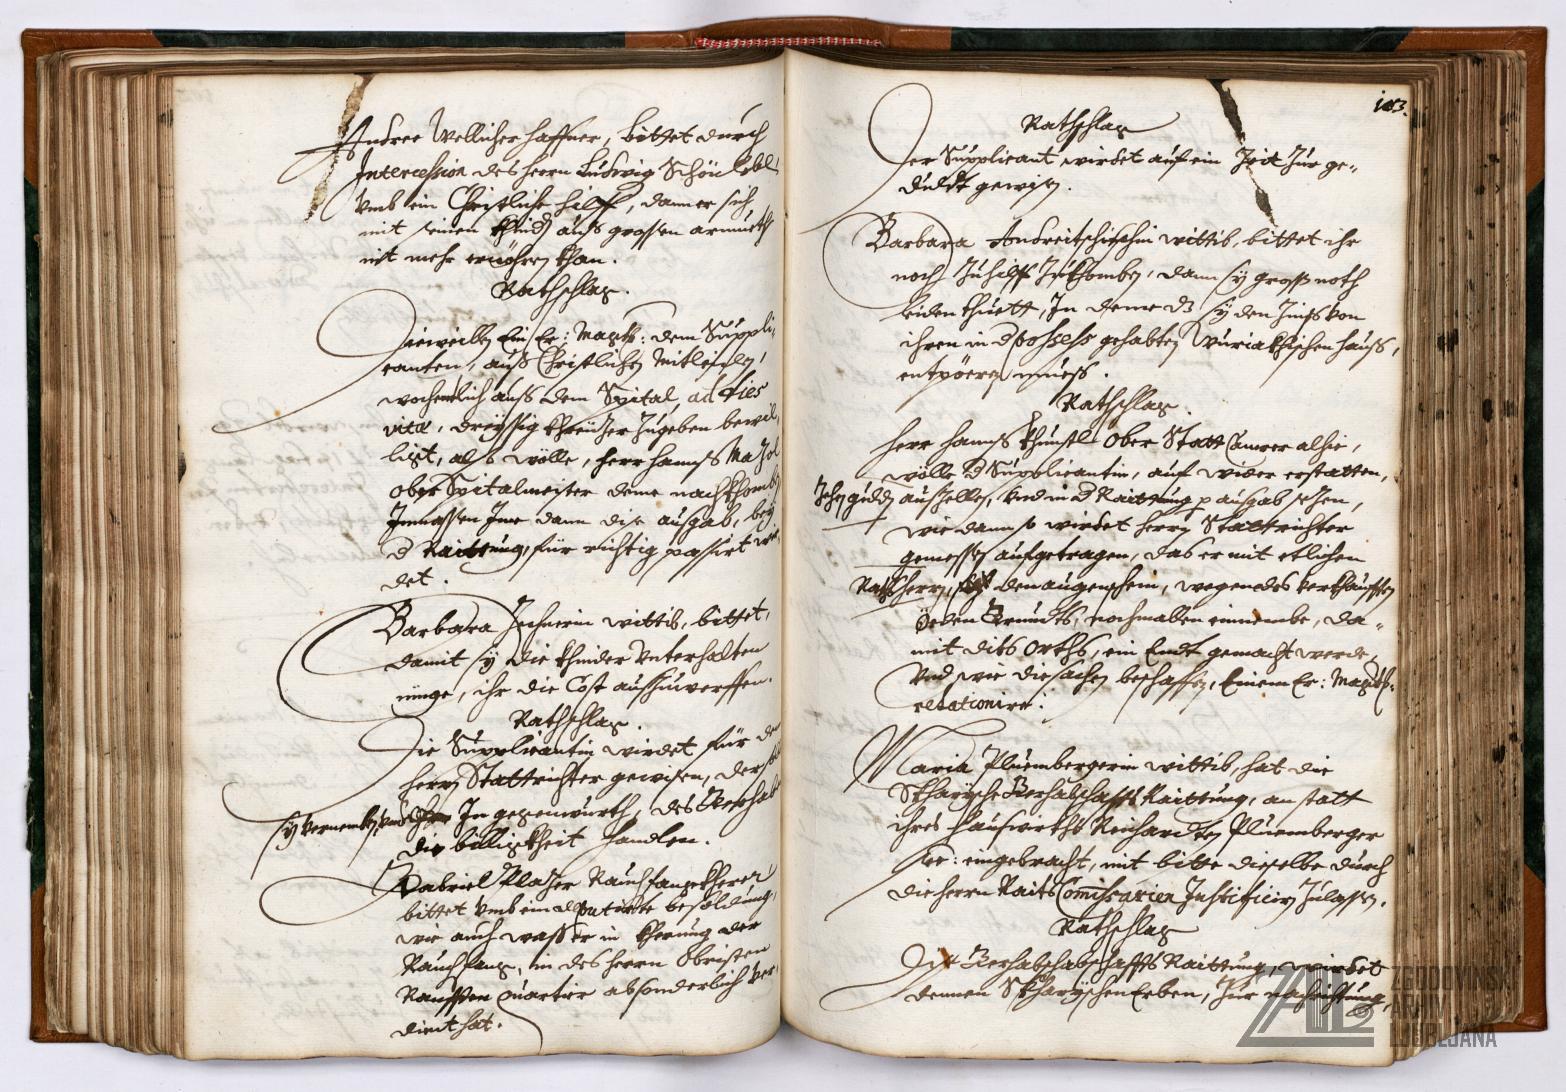 Andree Wellicher haffner, bittet durch
Intercession des herrn Ludwig Schönlebl
umb ein Christliche hilff, dann er sich
mit seinen khindern aus grossen armueth
nit mehr ernöhren khan.
Rathschlag.
Dieweillen Ein Er: Magist: dem Suppli-
canten, auß Christlichen mitleiden,
wochentlich auss dem Spital, ad dies
vitæ, dreyssig Khreuzer zugeben bewil-
ligt, als wölle, herr hanns
ober Spitalmeister deme nachkhomben
Inmassen Ime dann dise ausgab, bey
d Raittung, für richtig passirt wir-
det.
Barbara wittib, bittet,
damit sy die khinder unterhalten
müge, ihr die Cost
Rathschlag.
Die Supplicantin wirdet für den
herrn Stattrichter gewisen, der
sy vernemben, und In gegenwürth, des
die billigkheit handlen.
Gabriel Plazer Rauchfangkherer
bittet umb ein deputirte besoldung,
wie auch waß er in kherung der
Rauchfang, in des herrn Obristen
quartier absonderlich ver-
dient hat.
103.
Rathschlag
Der Supplicant wirdet auf ein Zeit zur ge-
duldt gewisen.
Barbara wittib, bittet ihr
noch zuhilff zukhomben, dann sy gross noth
leiden thuett, In deme dz sy den Zinss von
ihren in d possess gehabten hauss,
entpören muess.
Rathschlag.
herr hanns Khunstl Ober Statt Camrer alhie,
wölle d Supplicantin, auf wider erstatten,
Zehen gulden und in d Raittung p ausgab sezen,
wie dann so wirdet herrn Stattrichter
gemessen aufgetragen, das er mit etlichen
Rathsherrn, den augenschein, wegen des verkhaufften
öeden Grundts, nochmahlen einnembe, da-
mit dits Orths, ein Endt gemacht werde,
und wie die sachen beschaffen, Einem Er: Magist:
relationire.
Maria Pluembergerin wittib, hat die
Gerhabschaffts Raittung, anstatt
ihres hauswirths Reicharden Pluemberger
eingebracht, mit bitte dieselbe durch
die herrn Raits Comissarien Justificirn zulassen.
Rathschlag
Die Gerhabschaffts Raittung, wirdet
dennen Erben, zur nachrichtung,
ZAL
ZGODOVINSKI
ARHIV
LJUBLJANA